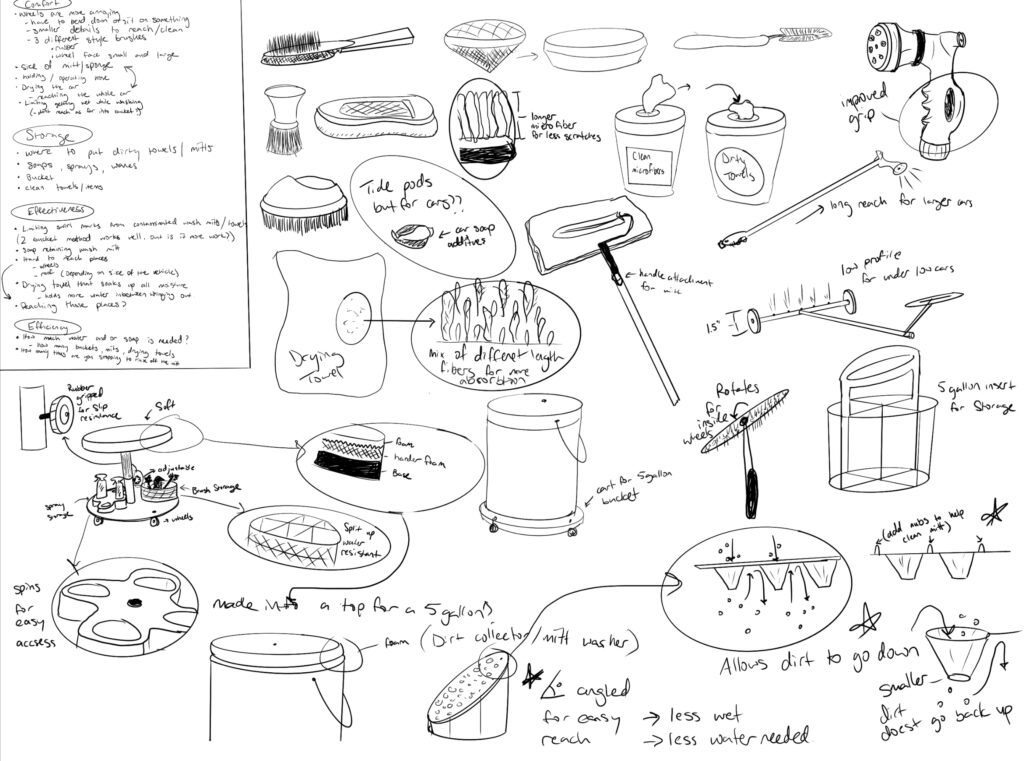 Comfort
• Wheels are more annoying
- have to bend down or sit on something
- smaller details to reach/clean
- 3 different style brushes
• rubber
• wheel face small and large
• size of mitt/sponge
• holding / operating hose
• Drying the car
- reaching the whole car
• Limiting getting wet while washing
Storage
• where to put dirty towels / mitts
• Soaps, sprays, waxes
• Bucket
• clean towels/items
Effectiveness
• Limiting swirl marks from contaminated wash mitts/towels
(2 bucket method works well, but is it more work?)
• Soap retaining wash mitt
• Hard to reach places
- wheels
- roof (Depending on size of the vehicle)
• Drying towel that soaks up all moisture
- holds more water inbetween wringing out
• Reaching those places?
Efficiency
• How much water and or soap is needed?
- how many buckets, mitts, drying towels
• How many times are you stopping to rinse off the mitt
longer
micro fiber
for less scratches
Clean
microfibers
Dirty
Towels
improved
grip
Tide pods
but for cars??
car soap
additives
long reach for larger cars
handle attachment
for mitt
low profile
for under low cars
1.5"
Drying
Towel
mix of different length
fibers for more
absorbtion
Rubber
gripped
for slip
resistance
Soft
adjustable
Brush Storage
spray
storage
wheels
foam
harder foam
Base
cart for 5 gallon
bucket
Rotates
for
inside
wheels
5 gallon insert
for Storage
Split up
water
resistant
(add nubs to help
clean mitt)
spins
for
easy
accsess
made into a top for a 5 gallon?
foam (Dirt collector/mitt washer)
angled
for easy
reach
→ less wet
→ less water needed
Allows dirt to go down
smaller
dirt
doesnt go back up